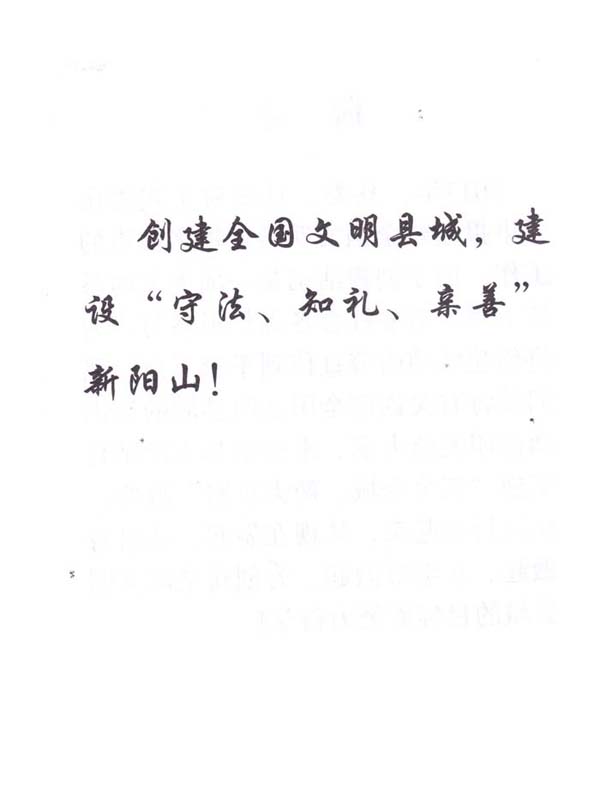 创建全国文明县城，建
设“守法、知礼、亲善”
新阳山！